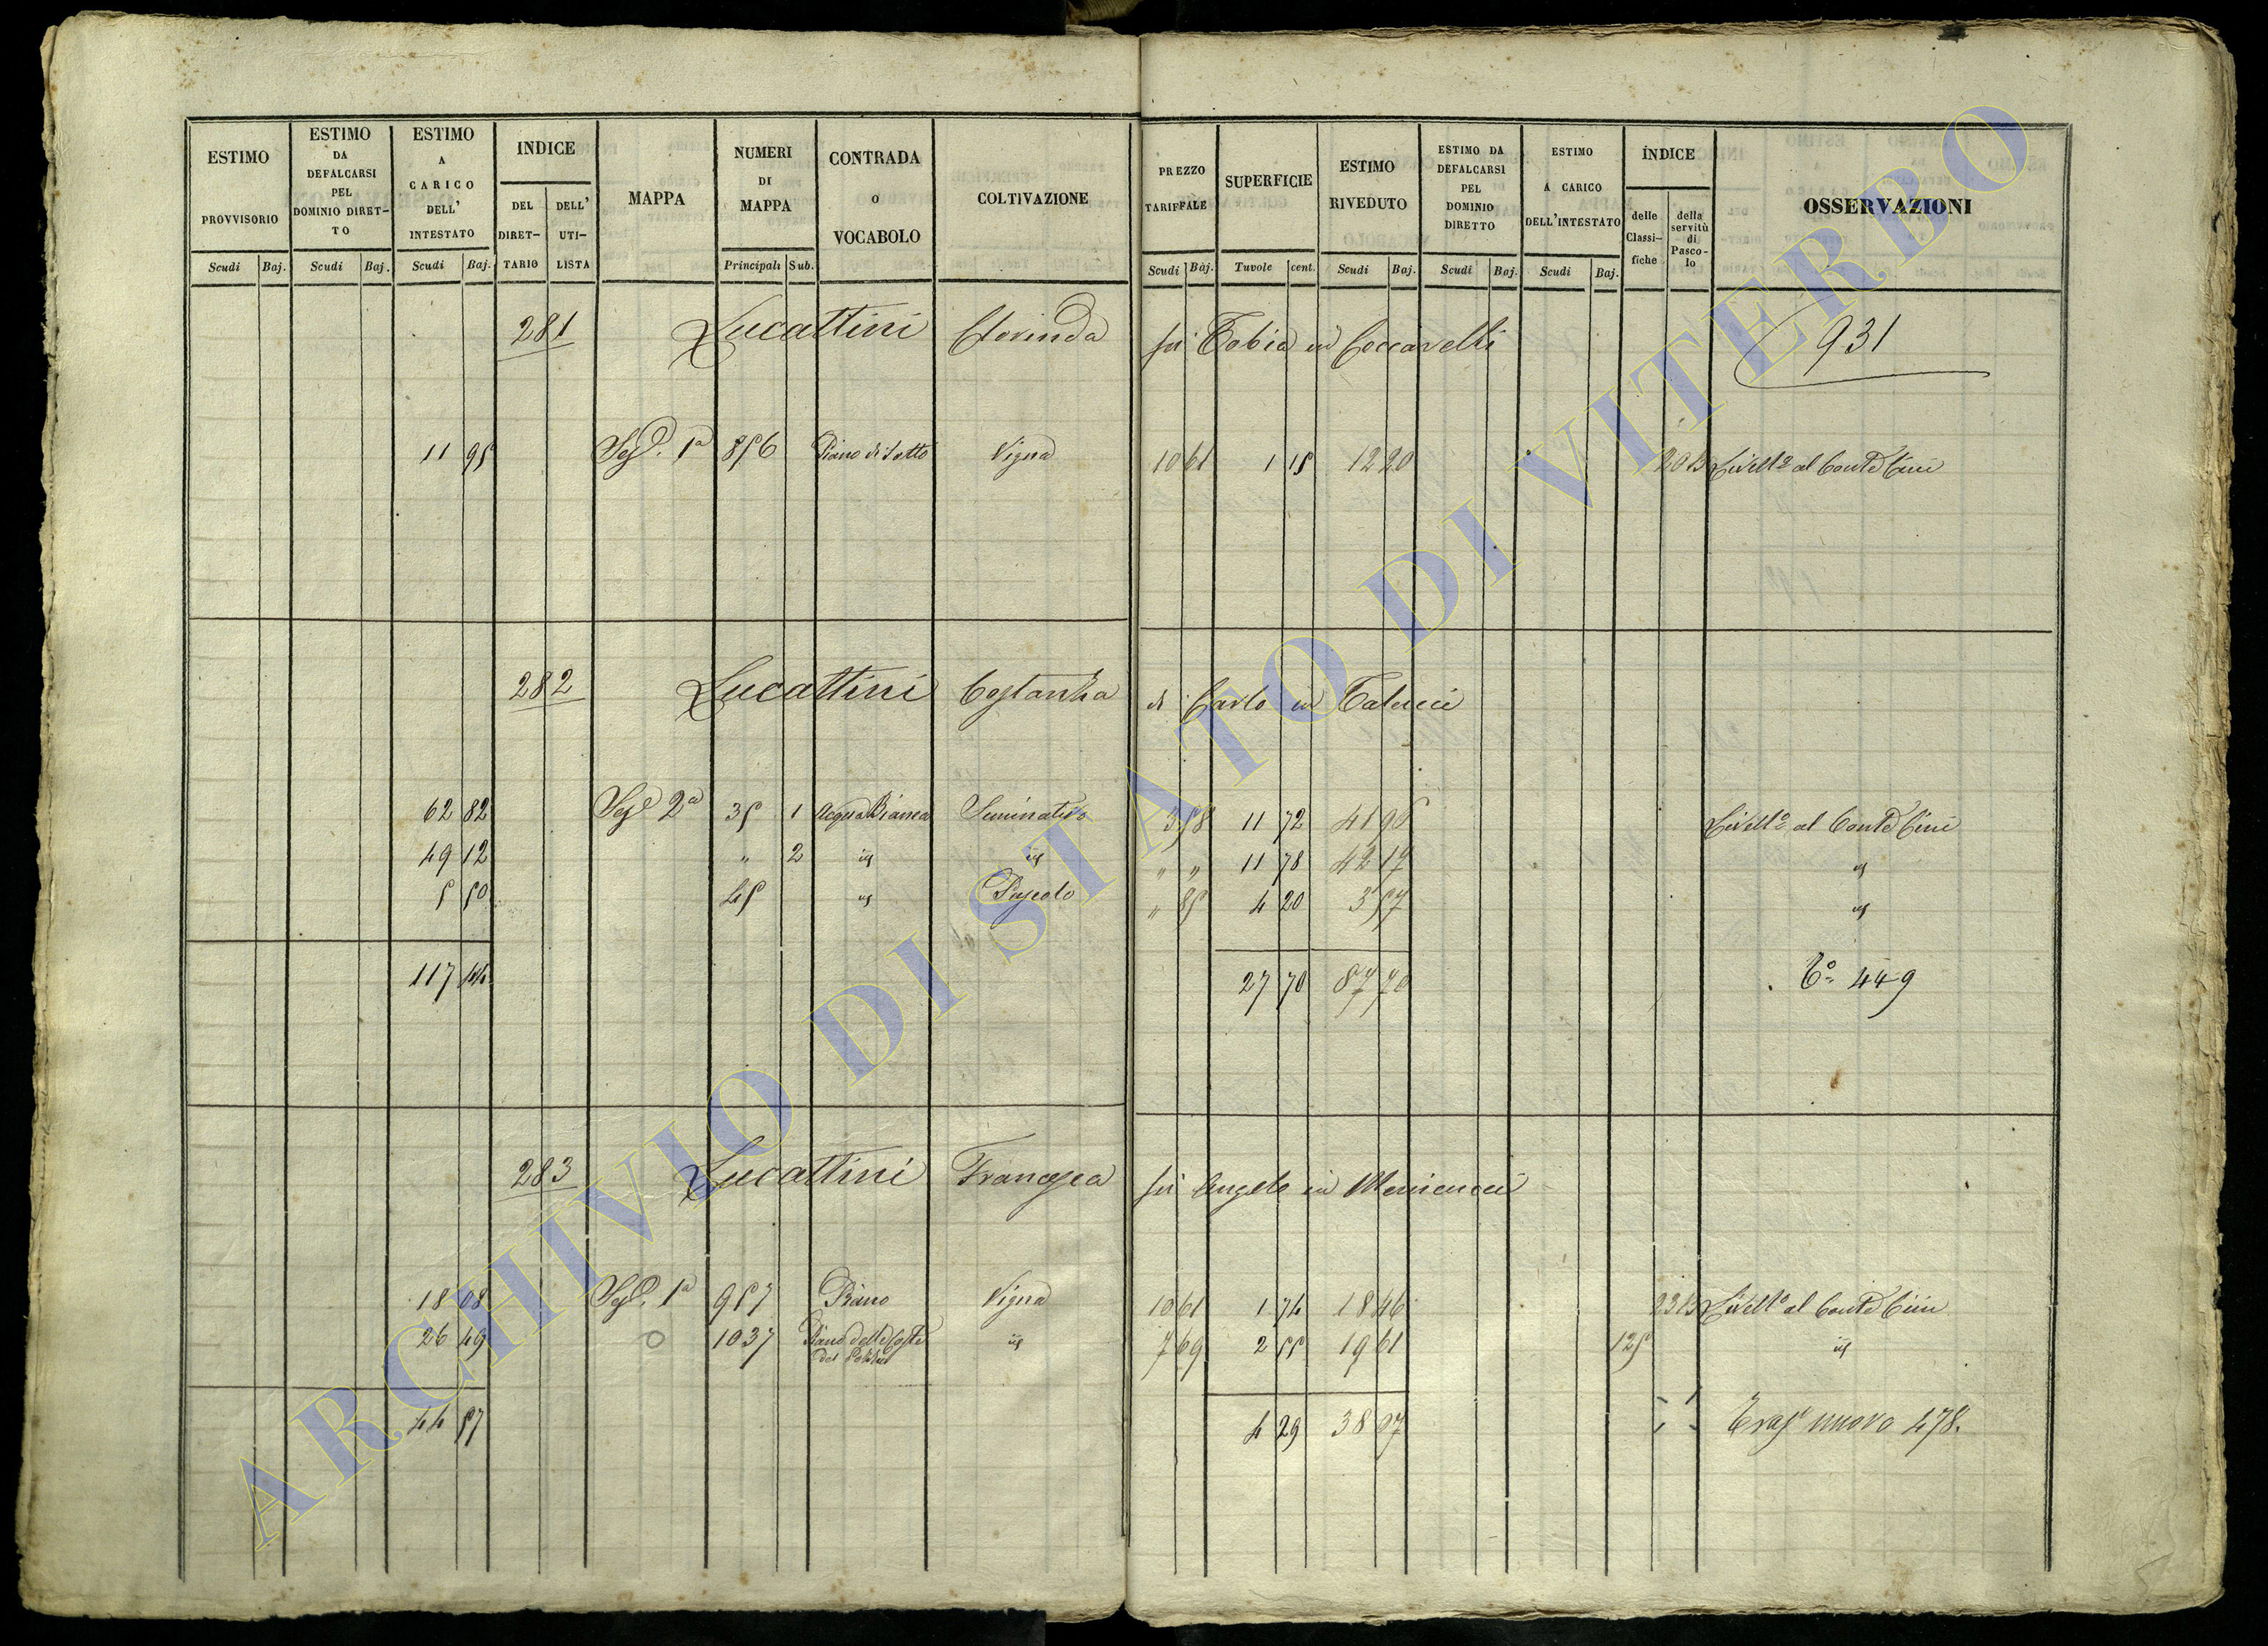 ESTIMO PROVVISORIO
ESTIMO DA DEFALCARSI PEL DOMINIO DIRET- TO
ESTIMO A CARICO DELL' INTESTATO
INDICE
DEL DIRET- TARIO
DELL' UTI- LISTA
MAPPA
NUMERI DI MAPPA
CONTRADA o VOCABOLO
COLTIVAZIONE
PREZZO TARIFFALE
SUPERFICIE
ESTIMO RIVEDUTO
ESTIMO DA DEFALCARSI PEL DOMINIO DIRETTO
ESTIMO A CARICO DELL'INTESTATO
INDICE
delle Classi- fiche
della servitù di Pasco- lo
OSSERVAZIONI
Scudi Baj. Scudi Baj. Scudi Baj. Principali Sub. Scudi Baj. Tavole cent. Scudi Baj. Scudi Baj. Scudi Baj.
281 Lucattini Clorinda fu Tobia in Coccarelli 931
11 95 Sez. 1a 856 Piano di Sotto Vigna 10 61 1 15 12 20 Livello al Conte Cini
282 Lucattini Costanza di Carlo in
62 82 Sez 2a 35 1 Acqua Bianca Seminativo 3 58 11 72 41 96 Livello al Conte Cini
49 12 " 2 id id " " 11 78 42 17 id
5 50 45 id Pascolo " 85 4 20 3 57 id
117 44 27 70 87 70 449
283 Lucattini Francesca fu Angelo in Menicucci
18 08 Sez. 1a 957 Piano Vigna 10 61 1 74 18 46 Livello al Conte Cini
26 49 1037 Piano delle Coste del 7 69 2 55 19 61 125 id
44 57 4 29 38 07 nuovo 478.
ARCHIVIO DI STATO DI VITERBO